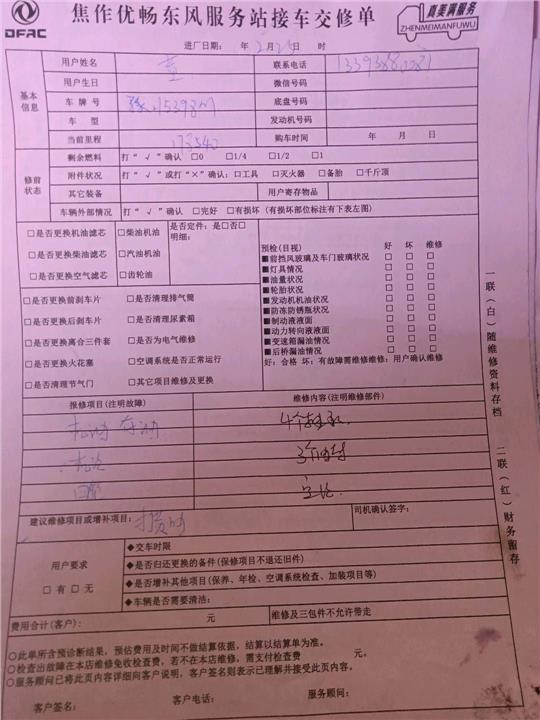 DFAC
焦作优畅东风服务站接车交修单
真美满服务
ZHENMEIMANFUWU
进厂日期: 年 2月25日 时
基本信息
用户姓名 董 联系电话
用户生日 微信号码
车牌号 底盘号码
车型 发动机号码
当前里程 173540 购车时间 年 月 日
修前状态
剩余燃料 打“√”确认 □0 □1/4 □1/2 □1
附件状况 打“√”或打“×”确认:□工具 □灭火器 □备胎 □千斤顶
其它装备 用户寄存物品
车辆外部情况 打“√”确认 □完好 □有损坏 (有损坏部位标注有下表左图)
□是否更换机油滤芯 □柴油机油 是否定件: 是□否□
明细:
□是否更换柴油滤芯 □汽油机油
□是否更换空气滤芯 □齿轮油
预检(目视) 好 坏 维修
■前挡风玻璃及车门玻璃状况 □ □ □
■灯具情况 □ □ □
■油量状况 □ □ □
■轮胎状况 □ □ □
■发动机机油状况 □ □ □
■防冻防锈瓶状况 □ □ □
■制动液液面 □ □ □
■动力转向液液面 □ □ □
■变速箱漏油情况 □ □ □
■后桥漏油情况 □ □ □
好:合格 坏:有故障需维修维修:用户确认维修
□是否更换前刹车片 □是否清理排气筒
□是否更换后刹车片 □是否清理尿素箱
□是否更换离合三件套 □是否为电气维修
□是否更换火花塞 □空调系统是否正常运行
□是否清理节气门 □其它项目维修及更换
报修项目(注明故障) 维修内容(注明维修部件)
建议维修项目或增补项目: 司机确认签字:
用户要求
□有 □无
◆交车时限
◆是否归还更换的备件(保修项目不退还旧件)
◆是否增补其他项目(保养、年检、空调系统检查、加装项目等)
◆车辆是否需要清洁:
费用合计(客户): 元 维修及三包件不允许带走
○此单所含预诊断结果,预估费用及时间不做结算依据,结算以结算单为准。
○检查出故障在本店维修免收检查费,若不在本店维修,需支付检查费 元。
○服务顾问已将此页内容详细向客户说明,客户签名则表示已理解并接受此页内容。
客户签名: 客户电话: 服务顾问:
一联(白)随维修资料存档
二联(红)财务留存